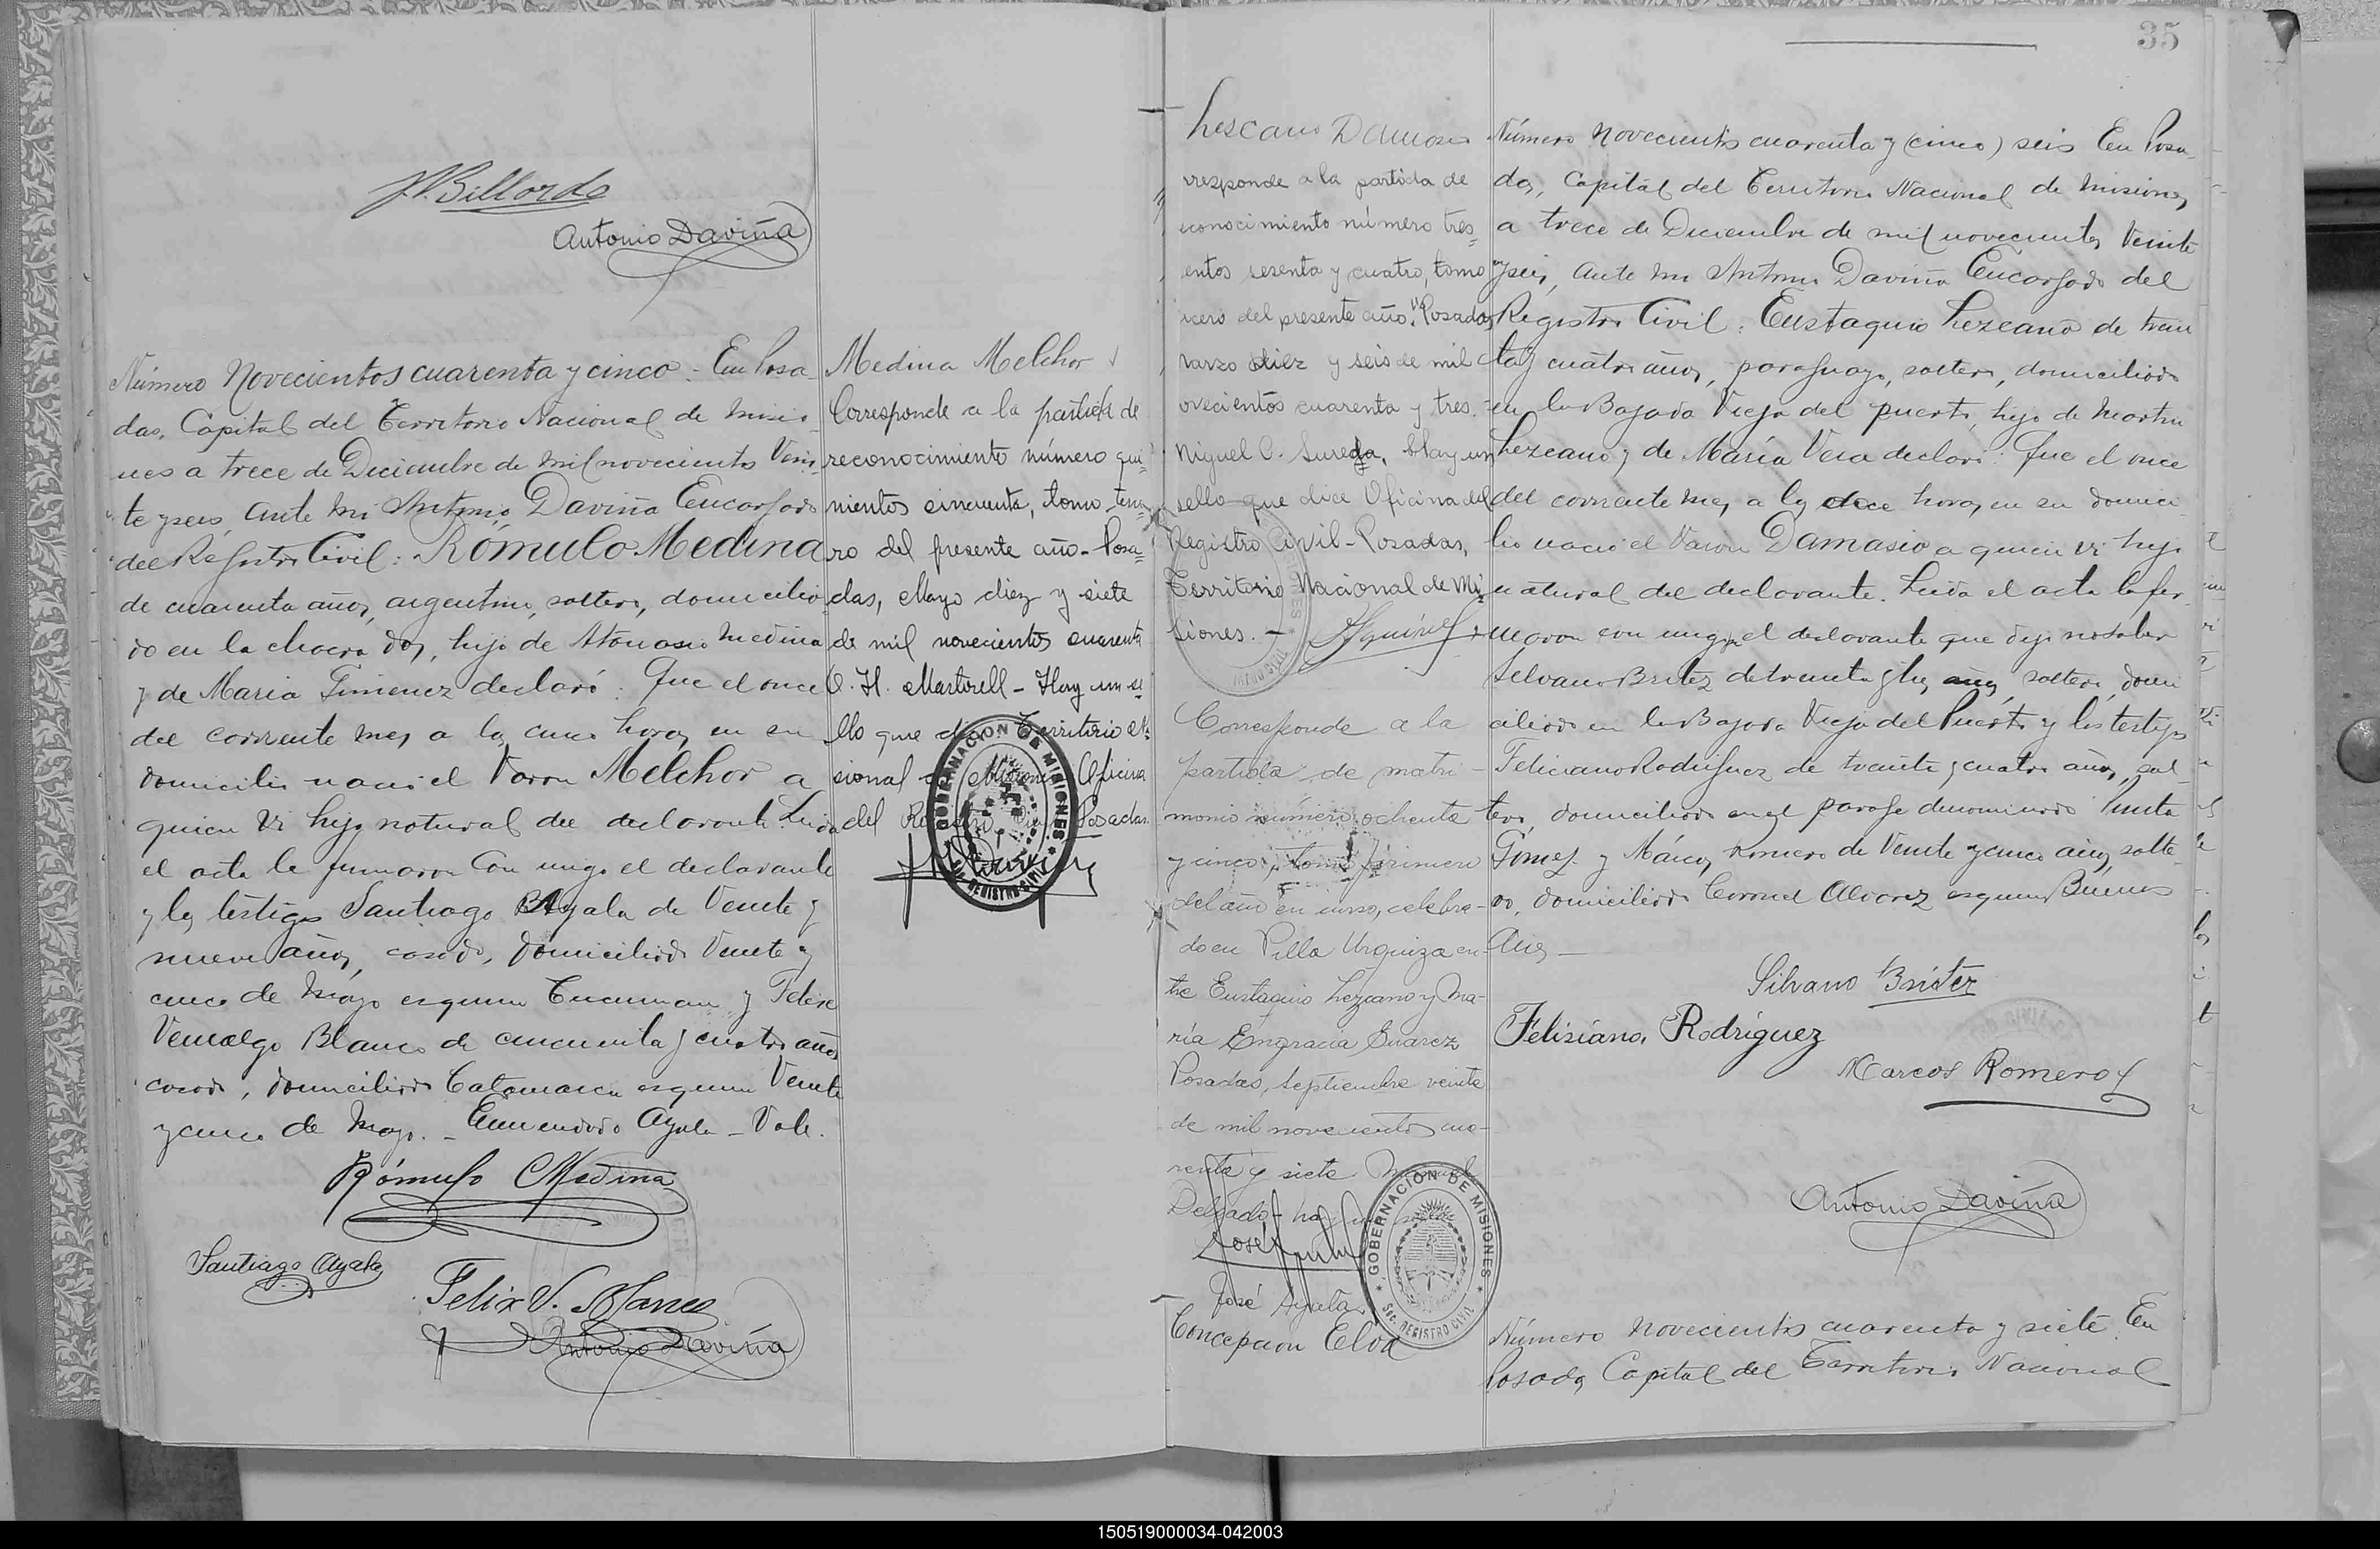 J. Billordo
Antonio Daviña
Número Novecientos cuarenta y cinco: En Posa-
das, Capital del Territorio Nacional de Misio-
nes a trece de Diciembre de mil novecientos Vein-
te y seis, ante mi Antonio Daviña Encargado
del Registro Civil: Rómulo Medina
de cuarenta años, argentino, soltero, domicilia
do en la chacra dos, hijo de Atanasio Medina
y de Maria Gimenez declaró: Que el once
del corriente mes a las cinco horas en su
domicilio nació el Varon Melchor a
quien vi hijo natural del declarante. Leida
el acta la firmaron con migo el declarante
y los testigos Santiago Ayala de Veinte y
nueve años, casado, domiciliado Veinte y
cinco de Mayo esquina Tucuman y Felix
Venealgo Blanco de cincuenta y cuatro años
casado, domiciliado Catamarca esquina Veinte
y cinco de Mayo. - Enmendado Ayala - Vale.
Rómulo Medina
Santiago Ayala
Felix V. Blanco
Antonio Daviña
Medina Melchor
Corresponde a la partida de
reconocimiento número qui-
nientos cincuenta, tomo terce
ro del presente año - Posa-
das, Mayo diez y siete
de mil novecientos cuarenta
O. H. Martirell - Hay un se
llo que dice: Territorio Na
cional de Misiones Oficina
del Registro Civil Posadas.
GOBERNACION DE MISIONES
SEC. REGISTRO CIVIL
35
Lescano Damasio
rresponde a la partida de
econocimiento número tres=
entos sesenta y cuatro, tomo
rcero del presente año. Posadas
marzo diez y seis de mil
ovecientos cuarenta y tres.
Miguel C. Sureda, Hay un
sello que dice Oficina del
Registro Civil - Posadas,
Territorio Nacional de Mi-
siones. -
Corresponde a la
partida de matri-
monio número ochenta
y cinco, tomo primero
del año en curso, celebra-
do en Villa Urquiza en-
tre Eustaquio Lezcano y Ma-
ría Engracia Suarez
Posadas, Septiembre veinte
de mil novecientos cua-
renta y siete Manuel
Delgado - hay un sello
José Ayala
GOBERNACION DE MISIONES
SEC. REGISTRO CIVIL
Concepcion Elod
Número Novecientos cuarenta y (cinco) seis En Posa-
das, Capital del Territorio Nacional de Misiones,
a trece de Diciembre de mil novecientos Veinte
y seis, ante mi Antonio Daviña Encargado del
Registro Civil: Eustaquio Lezcano de trein
ta y cuatro años, paraguayo, soltero, domiciliado
en la Bajada Vieja del puerto, hijo de Martin
Lezcano y de María Vera declaró: Que el once
del corriente mes a las doce horas en su domici
lio nació el Varon Damasio a quien vi hijo
natural del declarante. Leida el acta la fir-
maron con migo el declarante que dijo no saber
Silvano Britez de treinta y tres años, soltero, domi
ciliado en la Bajada Vieja del Puerto y los testigos
Feliciano Rodriguez de treinta y cuatro años, sol-
tero, domiciliado en el paraje denominado Punta
Gomez y Márcos Romero de Veinte y cinco años, solte-
ro, domiciliado Coronel Alvarez esquina Buenos
Aires -
Silvano Britez
Felisiano, Rodríguez
Marcos Romero
Antonio Daviña
Número Novecientos cuarenta y siete. En
Posadas, Capital del Territorio Nacional
150519000034-042003